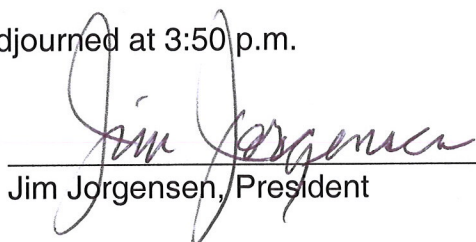 djourned at 3:50 p.m.
Jim Jorgensen
Jim Jorgensen, President